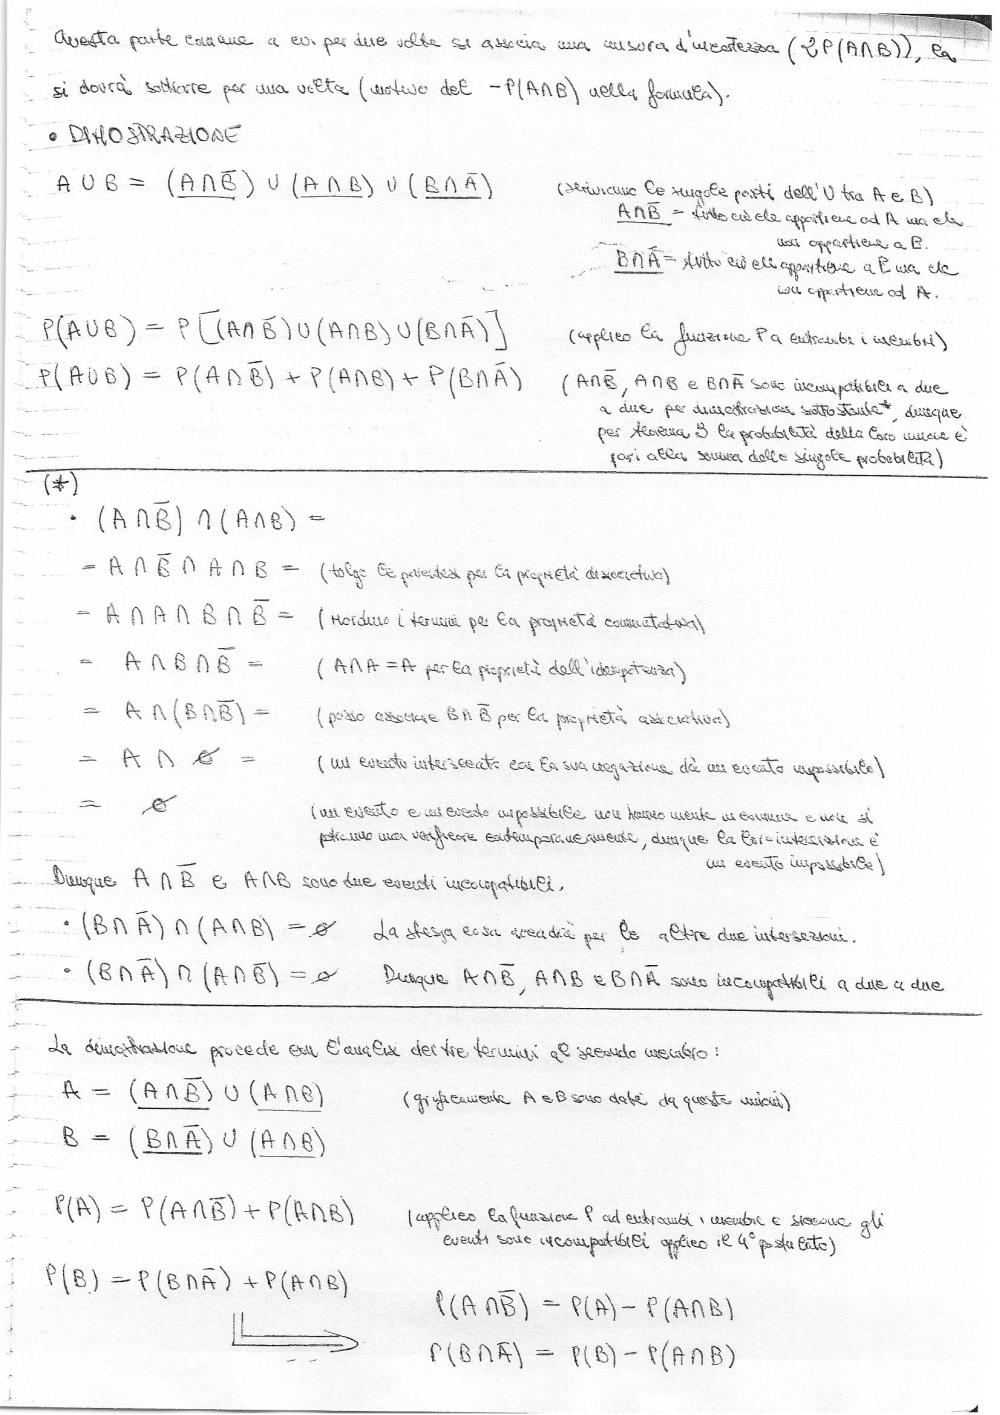 Questa parte comune a cui per due volte si associa una misura d'incertezza (2P(A∩B)), la
si dovrà sottrarre per una volta (motivo del -P(A∩B) nella formula).
• DIMOSTRAZIONE
A ∪ B = (A∩B̅) ∪ (A∩B) ∪ (B∩A̅) (scriviamo le singole parti dell'U tra A e B)
A∩B̅ = tutto ciò che appartiene ad A ma che
non appartiene a B.
B∩A̅ = tutto ciò che appartiene a B ma che
non appartiene ad A.
P(A∪B) = P[(A∩B̅)∪(A∩B)∪(B∩A̅)] (applico la funzione P a entrambi i membri)
P(A∪B) = P(A∩B̅) + P(A∩B) + P(B∩A̅) (A∩B̅, A∩B e B∩A̅ sono incompatibili a due
a due per dimostrazione sottostante*, dunque
per teorema 3 la probabilità della loro unione è
pari alla somma delle singole probabilità)
(*)
• (A∩B̅) ∩ (A∩B) =
= A ∩ B̅ ∩ A ∩ B = (tolgo le parentesi per la proprietà dissociativa)
= A ∩ A ∩ B ∩ B̅ = (riordino i termini per la proprietà commutativa)
= A ∩ B ∩ B̅ = (A∩A = A per la proprietà dell'idempotenza)
= A ∩ (B∩B̅) = (posso associare B∩B̅ per la proprietà associativa)
= A ∩ ∅ = (un evento intersecato con la sua negazione dà un evento impossibile)
= ∅ (un evento e un evento impossibile non hanno niente in comune e non si
potranno mai verificare contemporaneamente, dunque la loro intersezione è
un evento impossibile)
Dunque A∩B̅ e A∩B sono due eventi incompatibili.
• (B∩A̅) ∩ (A∩B) = ∅ La stessa cosa accadrà per le altre due intersezioni.
• (B∩A̅) ∩ (A∩B̅) = ∅ Dunque A∩B̅, A∩B e B∩A̅ sono incompatibili a due a due
La dimostrazione procede con l'analisi dei tre termini al secondo membro:
A = (A∩B̅) ∪ (A∩B) (graficamente A e B sono date da queste unioni)
B = (B∩A̅) ∪ (A∩B)
P(A) = P(A∩B̅) + P(A∩B) (applico la funzione P ad entrambi i membri e siccome gli
eventi sono incompatibili applico il 4° postulato)
P(B) = P(B∩A̅) + P(A∩B)
P(A∩B̅) = P(A) - P(A∩B)
P(B∩A̅) = P(B) - P(A∩B)